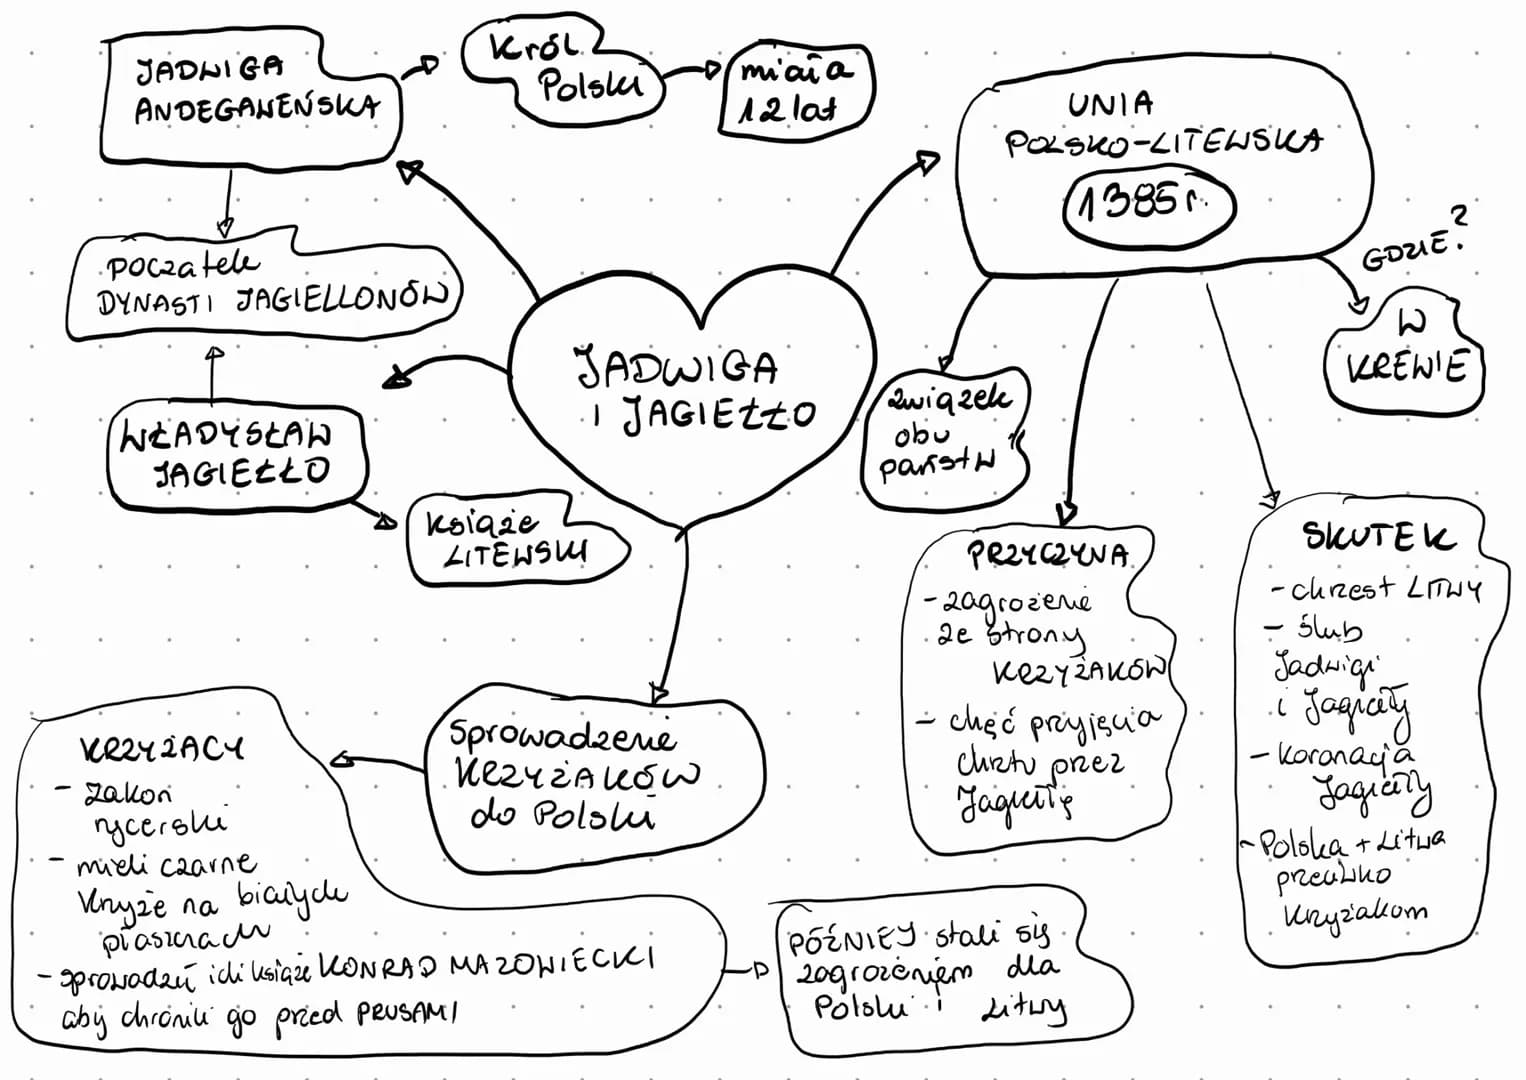 JADWIGA
ANDEGAWEŃSKA
Król
Polski
miała
12 lat
UNIA
POLSKO-LITEWSKA
1385 r.
GDZIE?
W
KREWIE
POCZATEK
DYNASTI JAGIELLONÓW
JADWIGA
I JAGIEŁŁO
WŁADYSŁAW
JAGIEŁŁO
Książe
LITEWSKI
związek
obu
państw
PRZYCZYNA
- zagrożenie
ze strony
KRZYŻAKÓW
- chęć przyjęcia
chrztu przez
Jagiełłę
SKUTEK
- chrzest LITWY
- ślub
Jadwigi
i Jagiełły
- koronacja
Jagiełły
- Polska + Litwa
przeciwko
Krzyżakom
Sprowadzenie
KRZYŻAKÓW
do Polski
KRZYŻACY
- zakon
rycerski
- mieli czarne
krzyże na białych
płaszczach
- sprowadził ich książe KONRAD MAZOWIECKI
aby chronili go przed PRUSAMI
PÓŹNIEJ stali się
zagrożeniem dla
Polski i Litwy